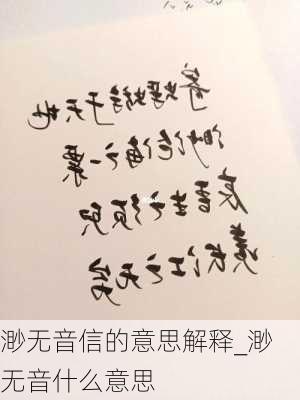 寄蜉蝣于天地
渺沧海之一粟
哀吾生之须臾
羡长江之无穷
渺无音信的意思解释_渺
无音什么意思